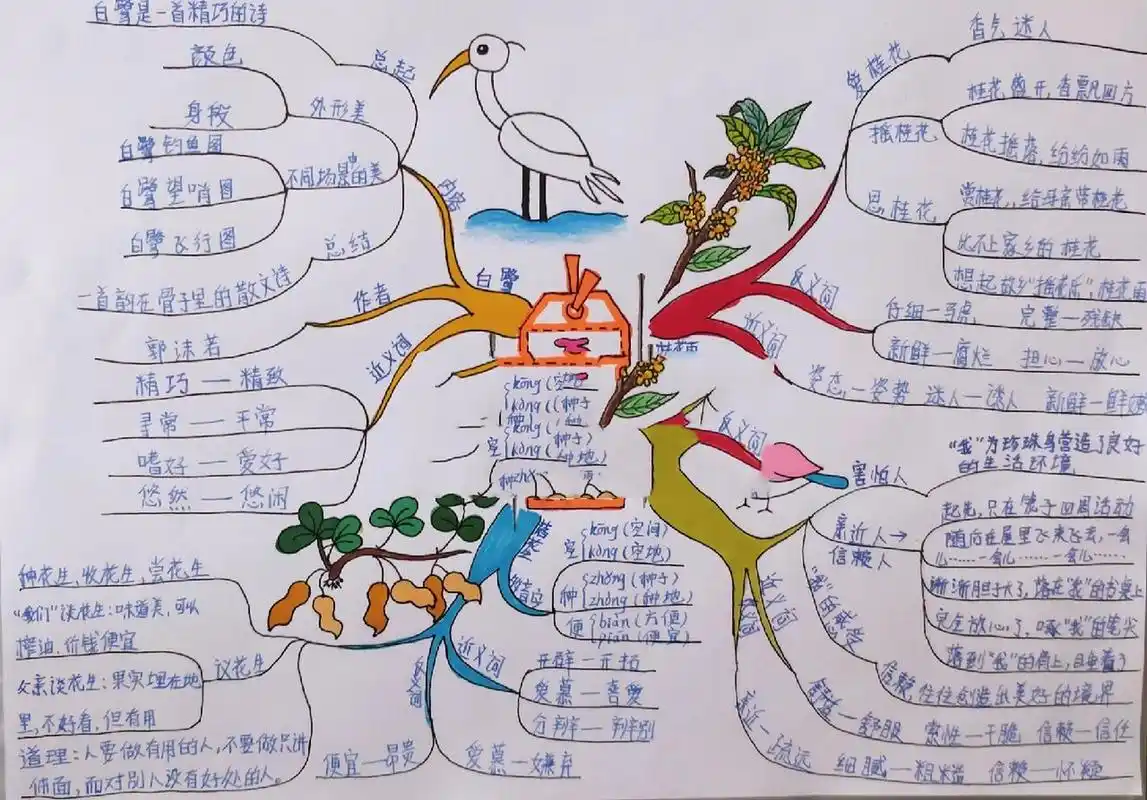 白鹭是一首精巧的诗
总起
颜色
身段
外形美
白鹭钓鱼图
白鹭望哨图
白鹭飞行图
不同场景中的美
总结
一首韵在骨子里的散文诗
内容
白鹭
作者
郭沫若
近义词
精巧——精致
寻常——平常
嗜好——爱好
悠然——悠闲
爱桂花
香气迷人
摇桂花
桂花盛开,香飘四方
桂花摇落,纷纷如雨
思桂花
赏桂花,给母亲带桂花
比不上家乡的桂花
想起故乡"摇花乐",桂花雨
反义词
仔细—马虎 完整—残缺
新鲜—腐烂 担心—放心
近义词
姿态—姿势 迷人—诱人 新鲜—鲜
kōng(空地
kòng(种子
(种子)
kòng(种地)
空
种
落花生
种花生、收花生、尝花生
"我们"谈花生:味道美,可以
榨油,价钱便宜
议花生
父亲谈花生:果实埋在地
里,不好看,但有用
道理:人要做有用的人,不要做只讲
体面,而对别人没有好处的人。
多音字
空 kōng(空间)
kòng(空地)
种 zhǒng(种子)
zhòng(种地)
便 biàn(方便)
pián(便宜)
近义词
开辟—开拓
爱慕—喜爱
分辨—辨别
反义词
便宜—昂贵
爱慕—嫌弃
反义词
害怕人
"我"为珍珠鸟营造了良好
的生活环境
亲近人→
信赖人
起先,只在笼子四周活动
随后在屋里飞来飞去,一会
儿……一会儿……一会儿……
渐渐胆子大了,落在"我"的书桌上
完全放心了,啄"我"的笔尖
落到"我"的肩上,且睡着了
"我"的感受
信赖往往创造出美好的境界
近义词
舒服 索性—干脆 信赖—信任
反义词
亲近—疏远 细腻—粗糙 信赖—怀疑